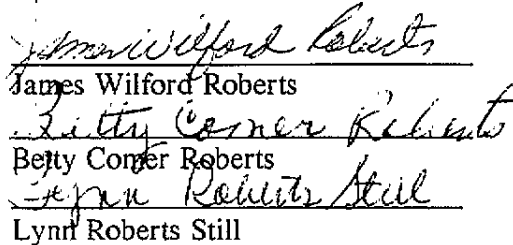 James Wilford Roberts
James Wilford Roberts
Betty Comer Roberts
Betty Comer Roberts
Lynn Roberts Still
Lynn Roberts Still